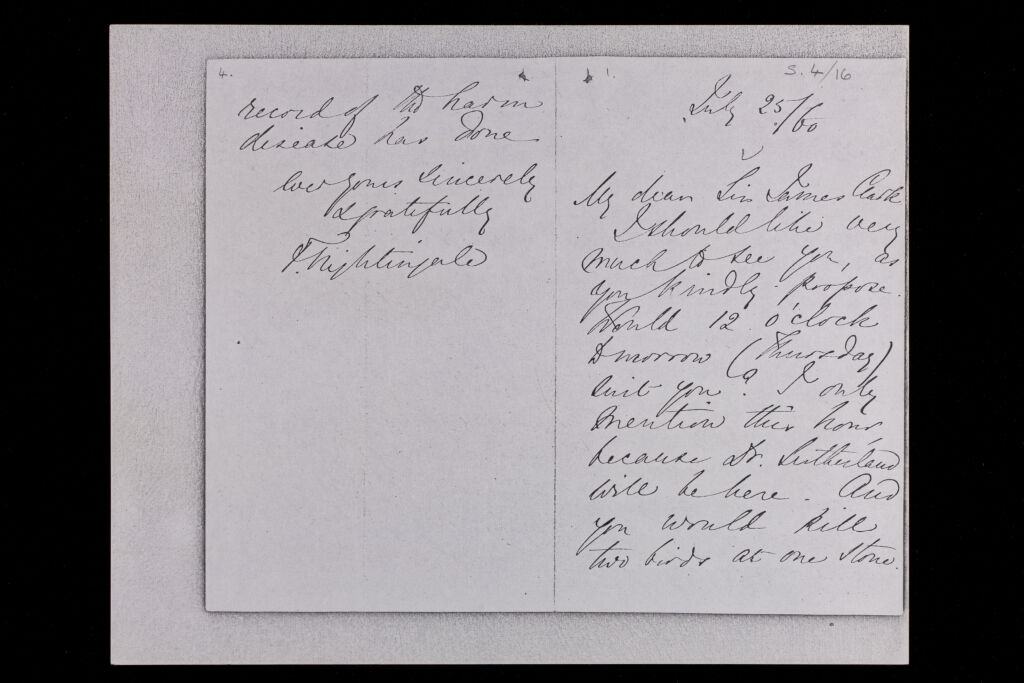 4.
record of the harm
disease has done
Ever yours sincerely
& gratefully
F. Nightingale
1.
S. 4/16
July 25/60
My dear Sir James Clark
I should like very
much to see you, as
you kindly propose.
Would 12 o'clock
tomorrow (Thursday)
suit you? I only
mention this hour,
because Dr. Sutherland
will be here. And
you would kill
two birds at one stone.